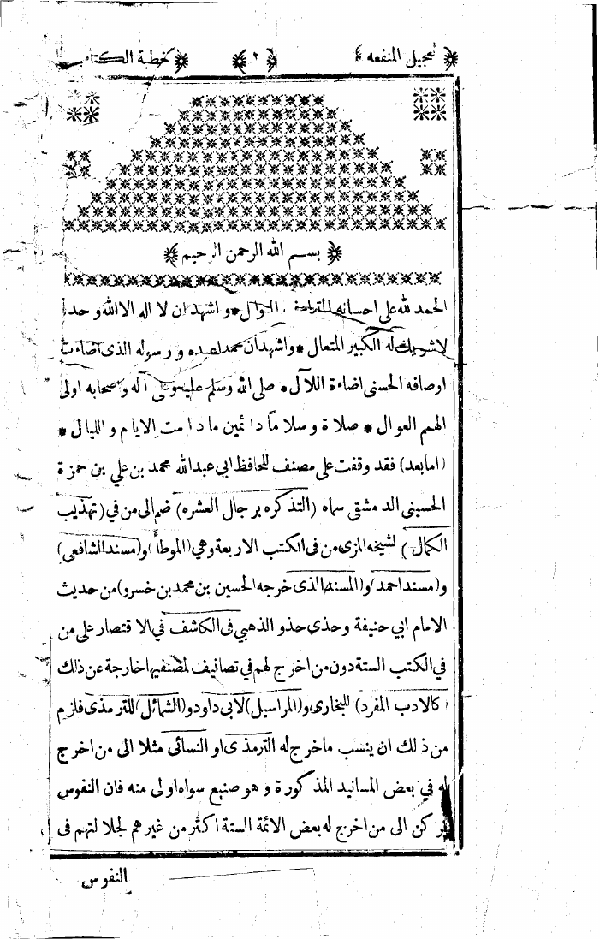 تعجيل المنفعه ﴿ ٢ ﴾ خطبة الكتاب
بسم الله الرحمن الرحيم
الحمد لله على احسانه المتوال * واشهد ان لا اله الا الله وحده
لا شريك له الكبير المتعال * واشهد ان محمدا عبده ورسوله الذى اضاءت
اوصافه الحسنى اضاءة اللآل * صلى الله وسلم عليه وعلى آله وصحابه اولى
الهمم العوال * صلاة وسلاما دائمين مادامت الايام والليال *
(امابعد) فقد وقفت على مصنف للحافظ ابى عبدالله محمد بن علي بن حمزة
الحسيني الدمشقى سماه (التذكره برجال العشره) ضم الى من فى (تهذيب
الكمال) لشيخه المزى من فى الكتب الاربعة وهي (الموطأ) و(مسند الشافعي)
و(مسند احمد) و(المسند الذى خرجه الحسين بن محمد بن خسرو) من حديث
الامام ابي حنيفة وحذى حذو الذهبي فى الكاشف في الاقتصار على من
في الكتب الستة دون من اخرج لهم فى تصانيف لمصنفيها خارجة عن ذلك
(كالادب المفرد) للبخارى و(المراسيل) لابى داود و(الشمائل) للترمذى فلزم
من ذلك ان ينسب ما خرج له الترمذى او النسائى مثلا الى من اخرج
له في بعض المسانيد المذكورة وهو صنيع سواه اولى منه فان النفوس
تركن الى من اخرج له بعض الائمة الستة اكثر من غيرهم لجلالتهم فى
النفوس